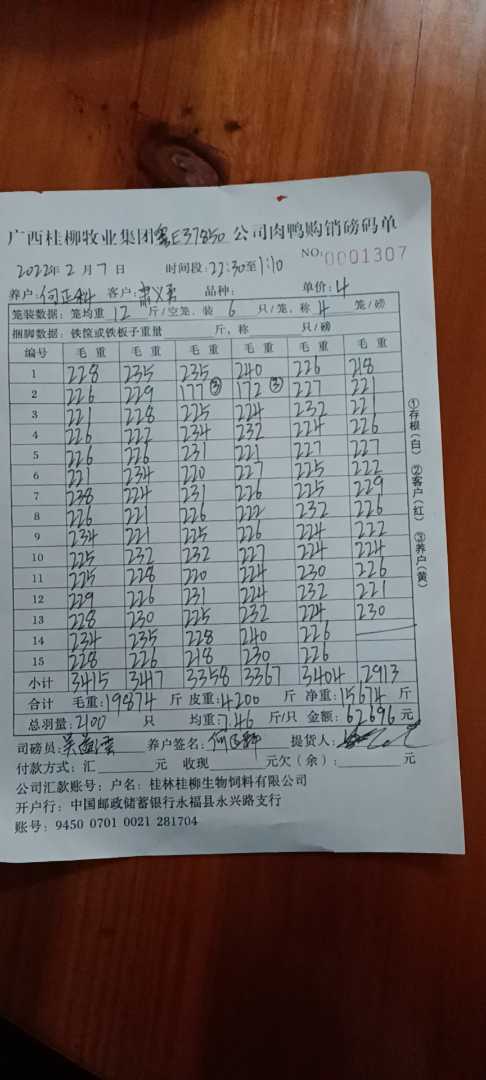 广西桂柳牧业集团粤E37850公司肉鸭购销磅码单
NO:0001307
2022年2月7日 时间段:22:30至1:10
养户: 客户: 品种: 单价:4
笼装数据: 笼均重 12 斤/空笼、装 6 只/笼,称 4 笼/磅
捆脚数据: 铁筐或铁板子重量 斤,称 只/磅
编号 毛重 毛重 毛重 毛重 毛重 毛重
1 228 235 235 240 226 218
2 226 229 177③ 172③ 227 221
3 221 228 225 224 232 221
4 226 222 234 232 224 226
5 226 226 231 221 227 227
6 221 234 220 227 225 222
7 238 224 231 226 225 229
8 226 221 226 222 232 226
9 234 221 225 226 224 222
10 225 232 232 227 224 224
11 225 228 220 224 230 226
12 229 226 231 224 232 221
13 228 230 225 232 224 230
14 234 235 228 240 226
15 228 226 218 230 226
小计 3415 3417 3358 3367 3404 2913
合计 毛重:19874 斤 皮重:4200 斤 净重:15674 斤
总羽量:2100 只 均重:7.46 斤/只 金额:62696 元
司磅员: 养户签名: 提货人:
付款方式: 汇 元 收现 元欠(余): 元
公司汇款账号: 户名: 桂林桂柳生物饲料有限公司
开户行: 中国邮政储蓄银行永福县永兴路支行
账号: 9450 0701 0021 281704
①存根(白) ②客户(红) ③养户(黄)